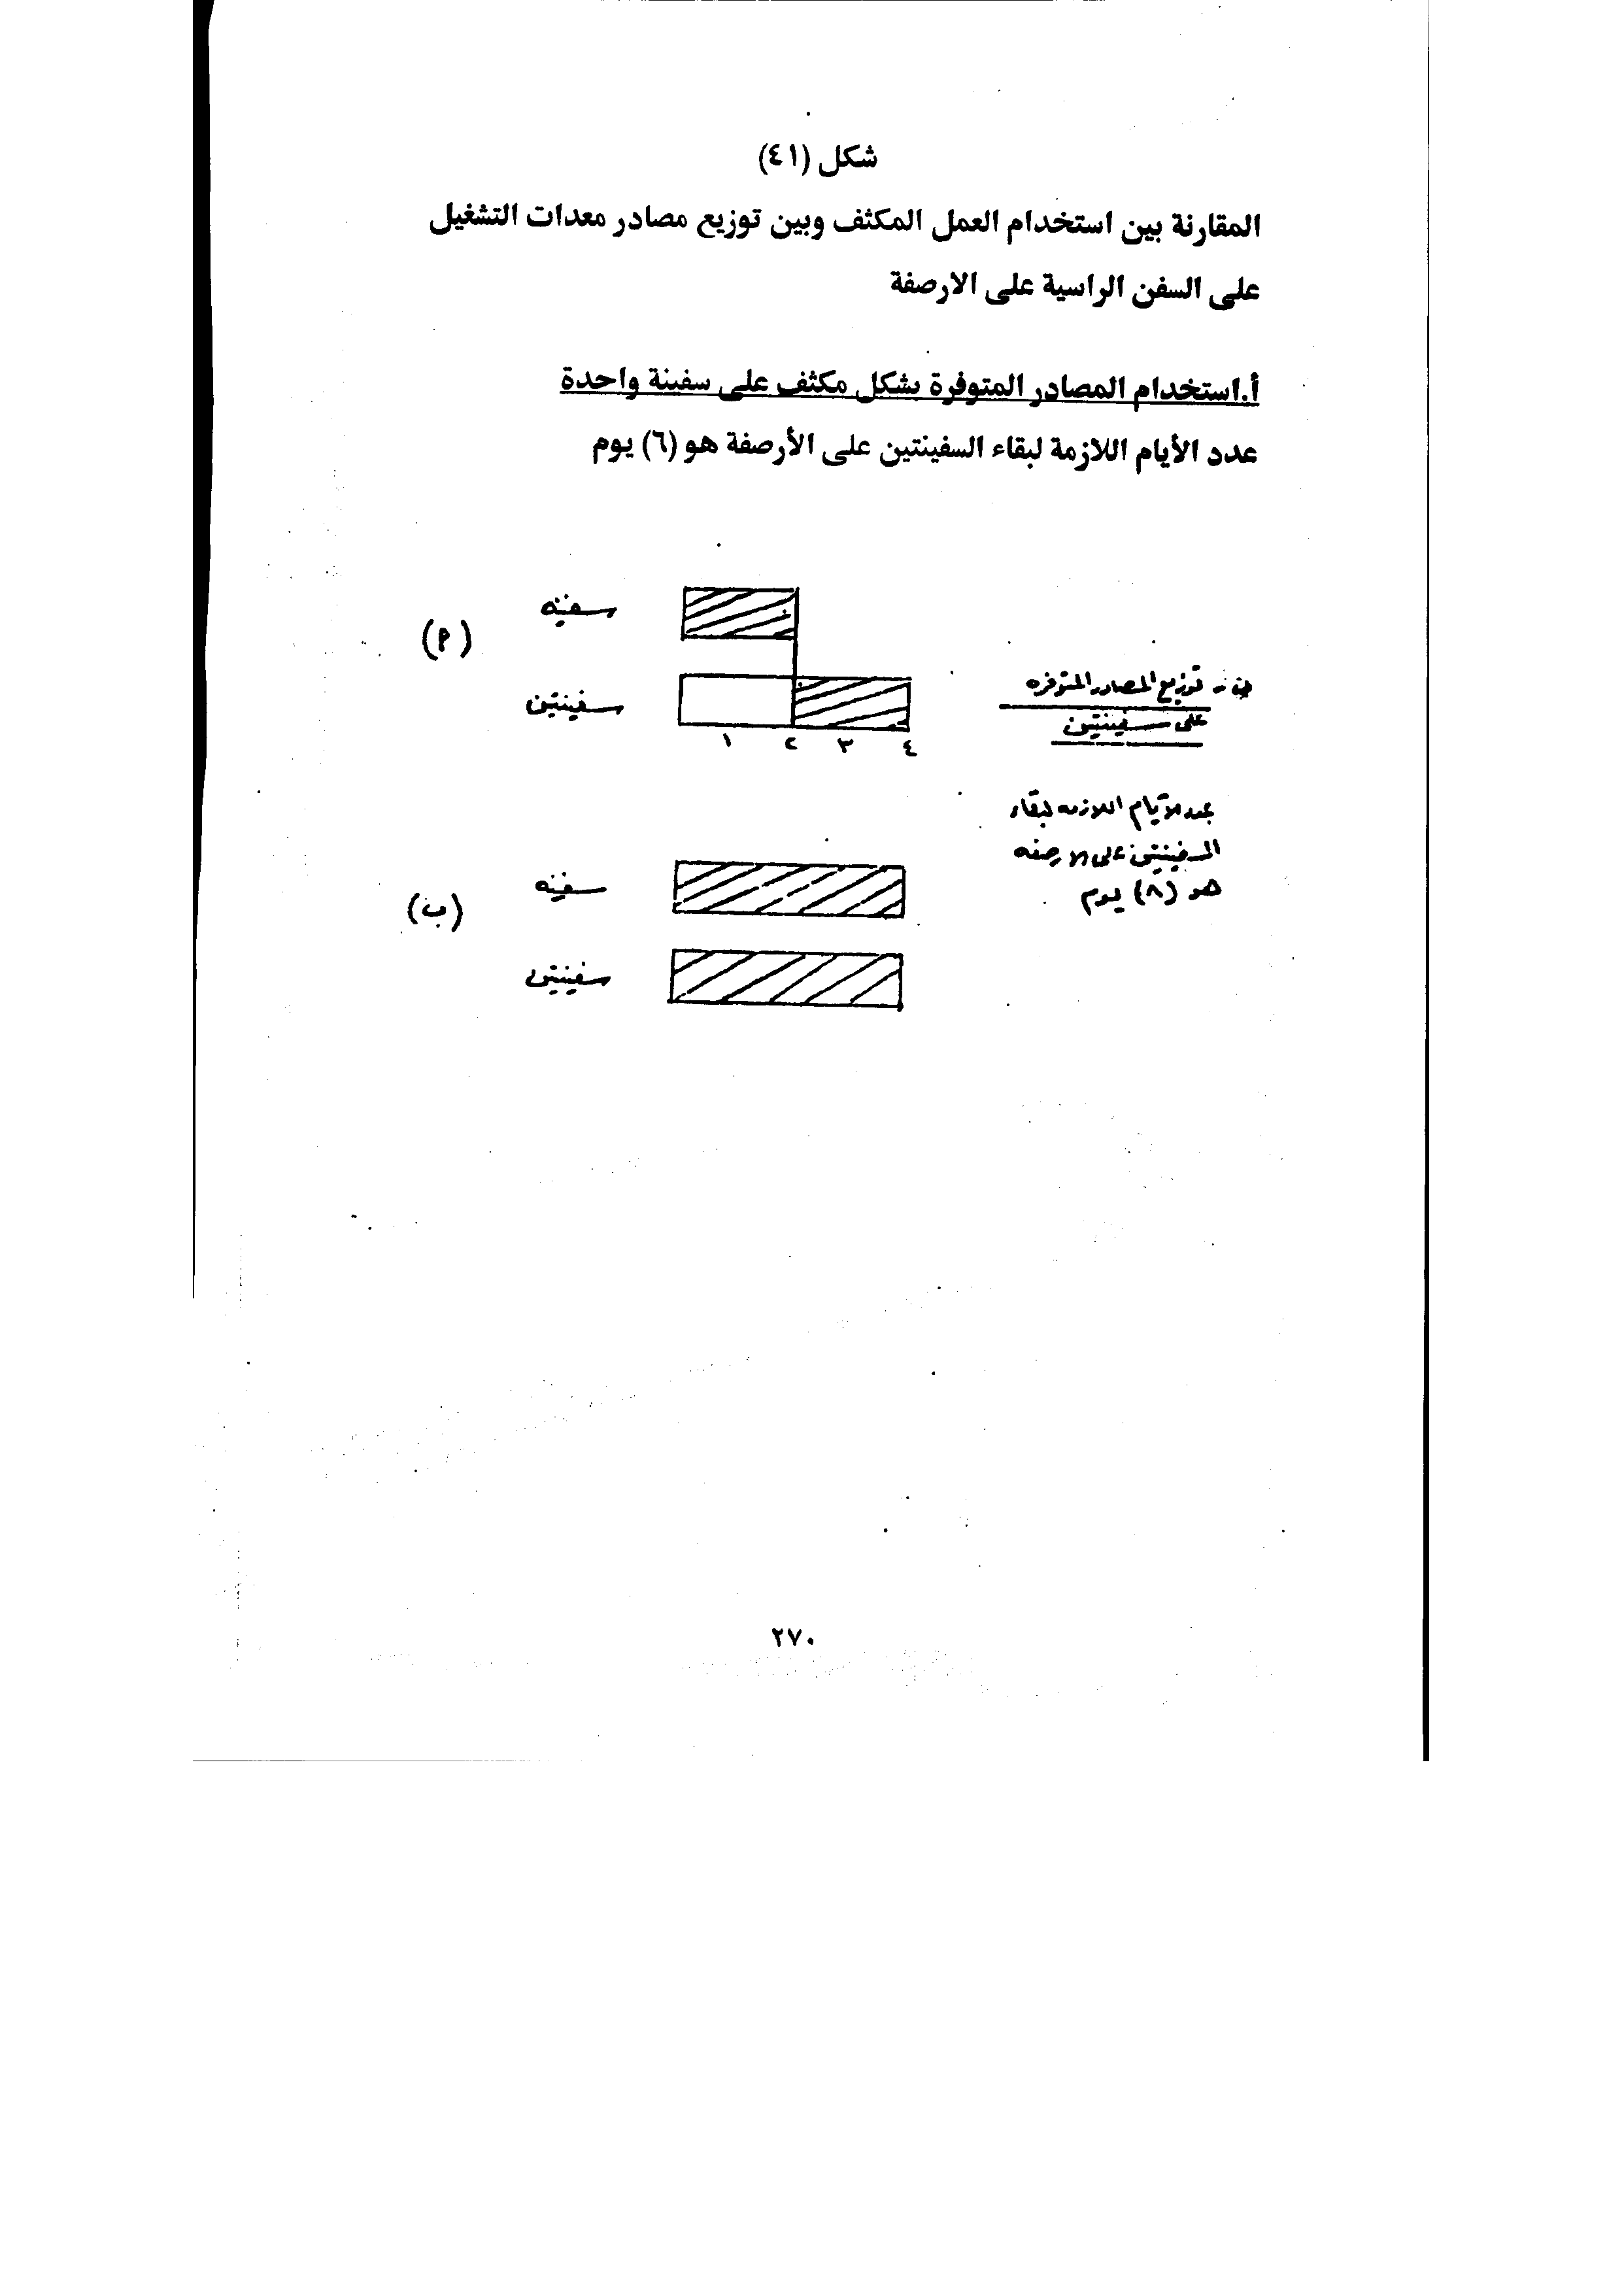 شكل (٤١)
المقارنة بين استخدام العمل المكثف وبين توزيع مصادر معدات التشغيل
على السفن الراسية على الارصفة
أ.استخدام المصادر المتوفرة بشكل مكثف على سفينة واحدة
عدد الأيام اللازمة لبقاء السفينتين على الأرصفة هو (٦) يوم
سفينه
(أ)
ب - توزيع المصادر المتوفره
على سفينتين
سفينتين
١ ٢ ٣ ٤
عدد الأيام اللازمه لبقاء
السفينتين على الارصفه
هو (٨) يوم
سفينه
(ب)
سفينتين
٢٧٠